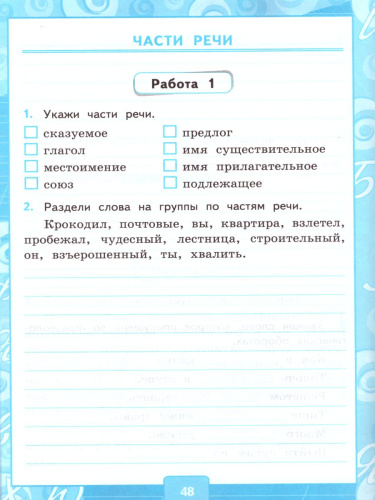 ЧАСТИ РЕЧИ
Работа 1
1. Укажи части речи.
сказуемое
предлог
глагол
имя существительное
местоимение
имя прилагательное
союз
подлежащее
2. Раздели слова на группы по частям речи.
Крокодил, почтовые, вы, квартира, взлетел,
пробежал, чудесный, лестница, строительный,
он, взъерошенный, ты, хвалить.
48